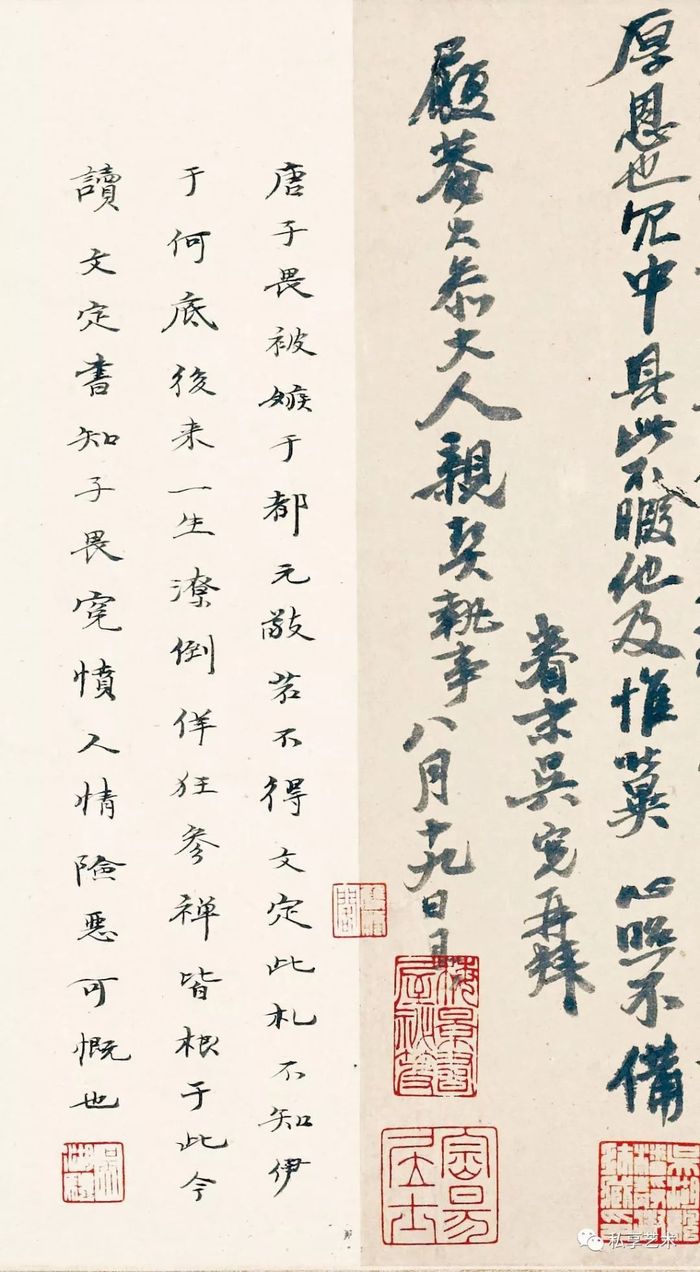 厚恩也冗中具此不暇他及惟冀 心照不備
眷末吳寬再拜
履菴大叅大人親契執事 八月十九日具
唐子畏被嫉于都元敬若不得文定此札不知伊
于何底後来一生潦倒佯狂參禅皆根于此今
讀文定書知子畏寃憤人情險惡可慨也
梅景書屋祕笈
私享艺术